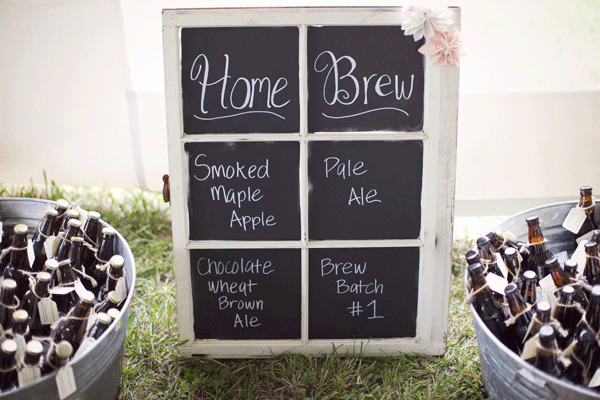 Home Brew
Smoked
Maple
Apple
Pale
Ale
Chocolate
Wheat
Brown
Ale
Brew
Batch
#1